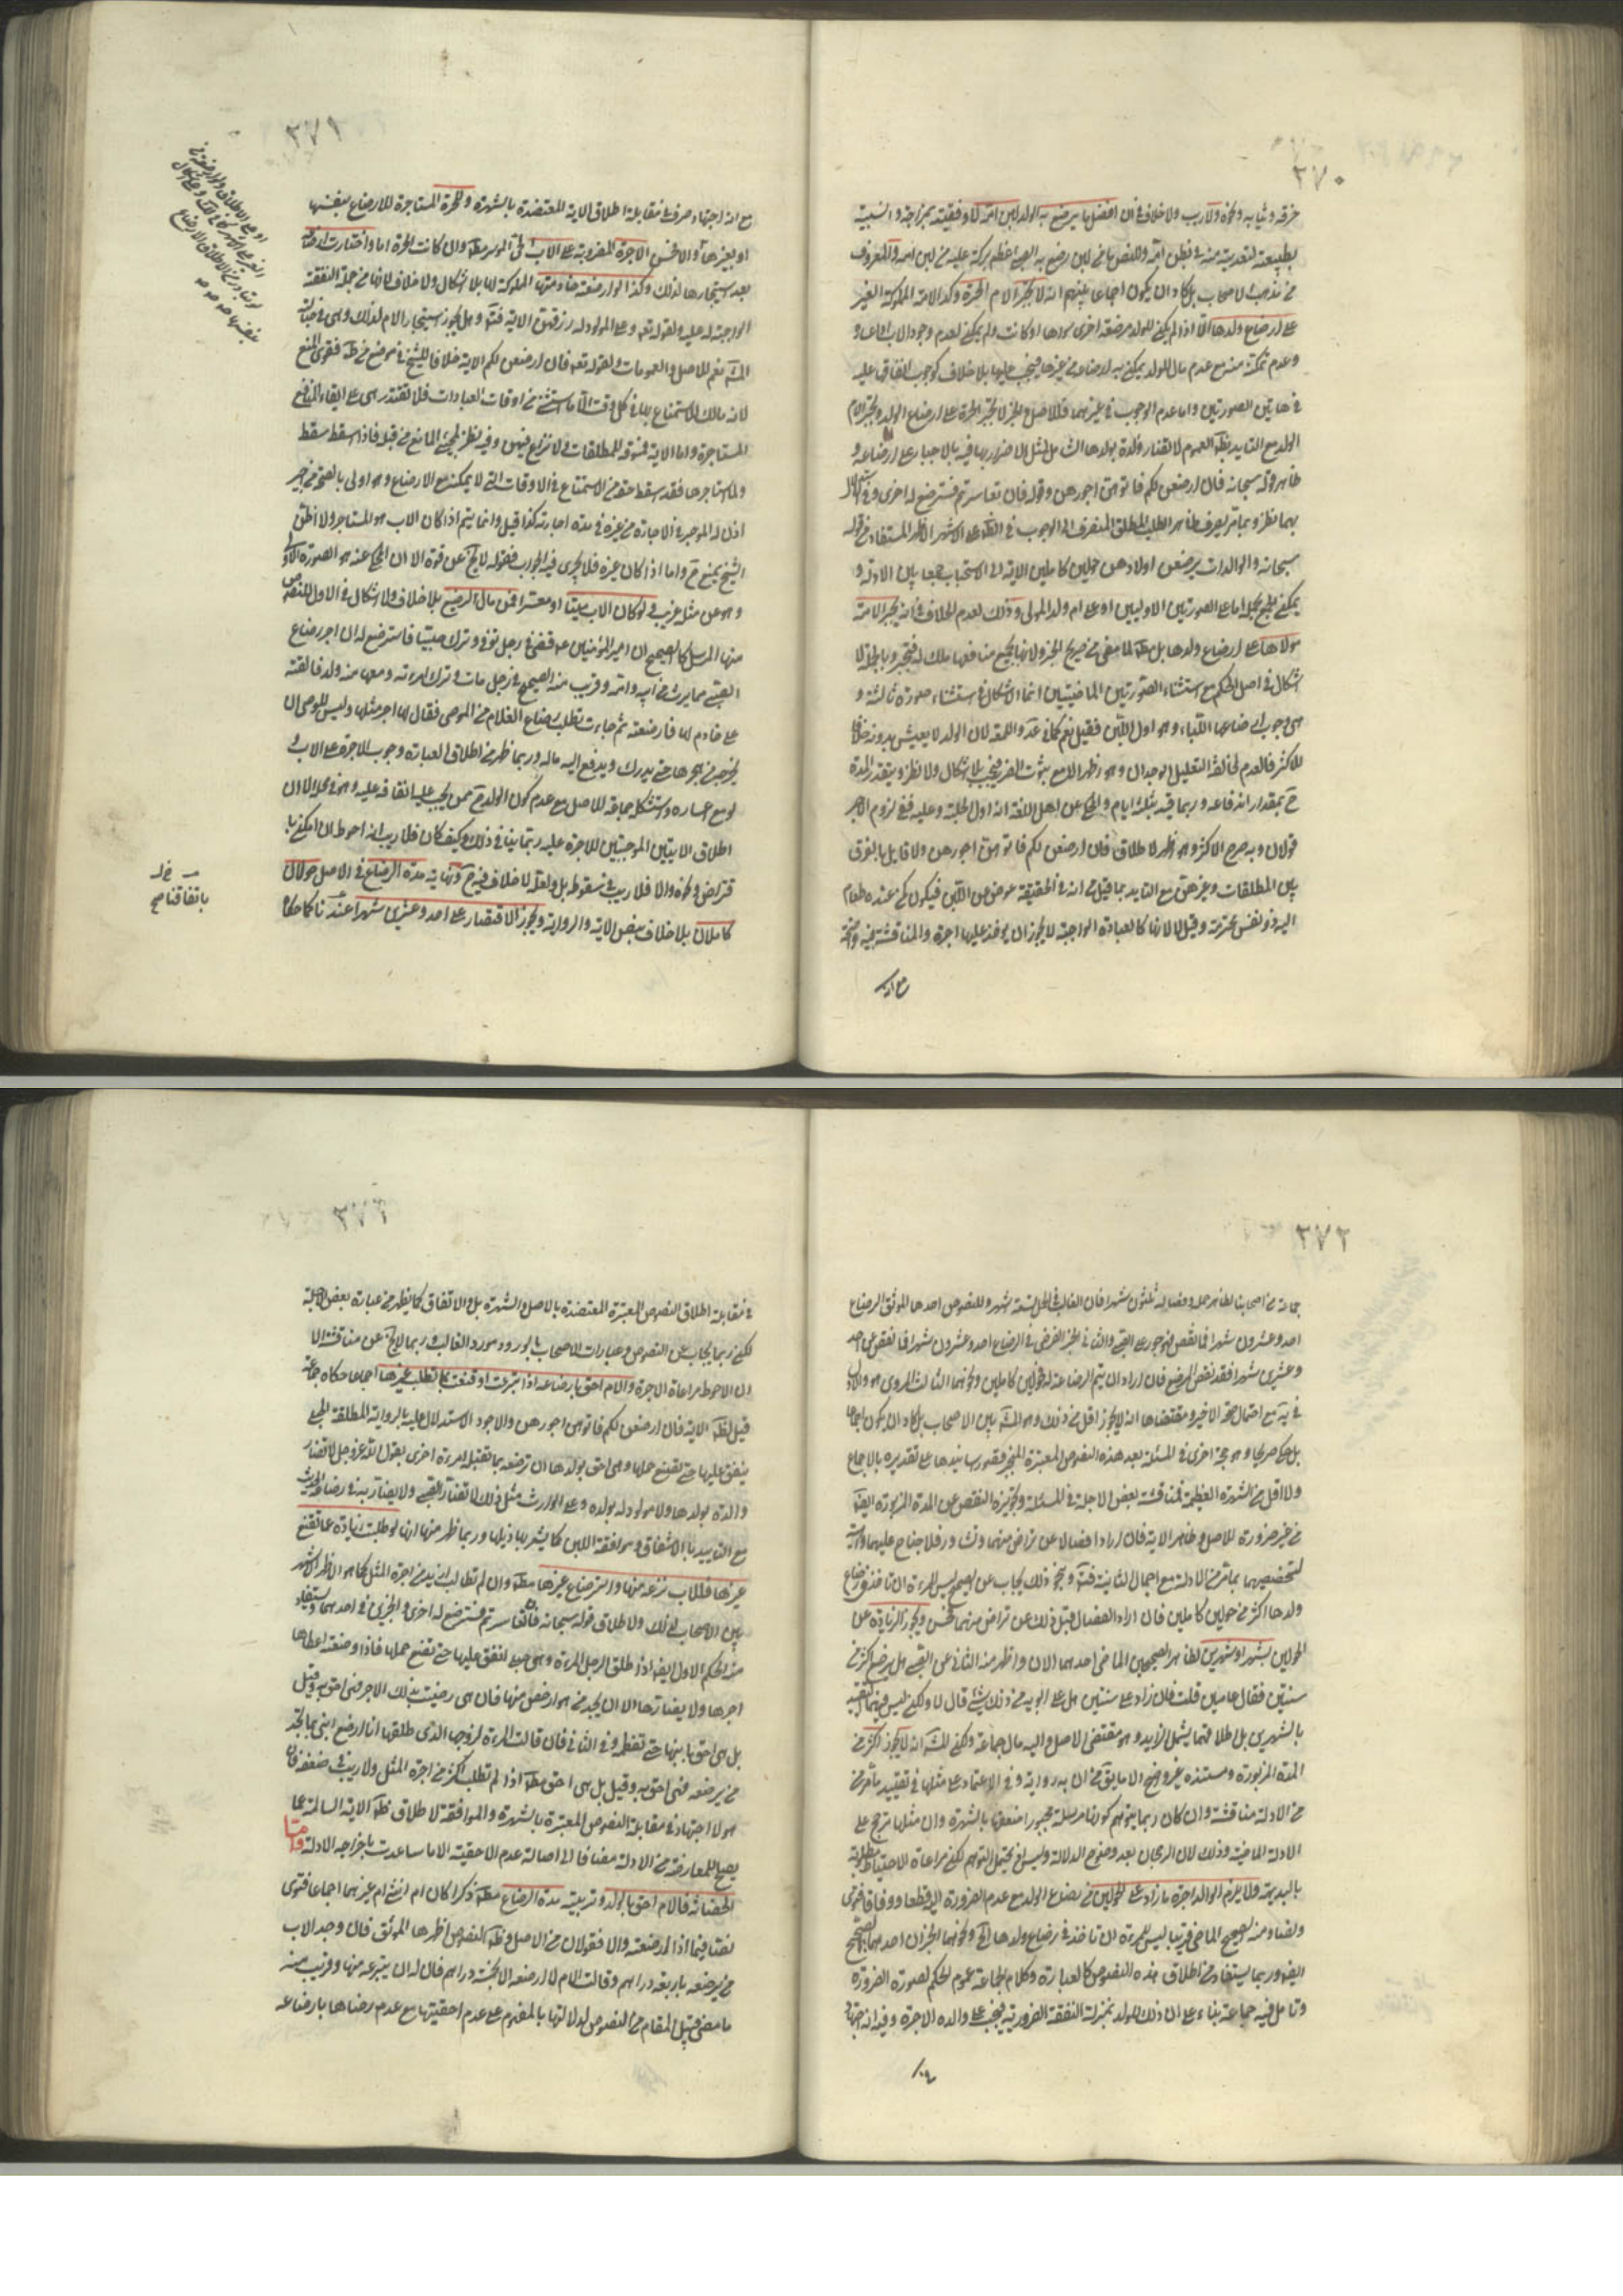 ٣٧٠
خرقه وثيابه ونحوه ولا ريب ولا خلاف في ان افضل ما يرضع به الولد لبن امه لاوفقيته بمزاجه وانسبيته
بطبيعته لتغذيته منه في بطن امه وللنص ما من لبن رضع به الصبي اعظم بركة عليه من لبن امه والمعروف
من مذهب الاصحاب بل كاد ان يكون اجماعا بينهم انه لا تجبر الام الحرة وكذا الامة المملوكة للغير
على ارضاع ولدها الا اذا لم يكن للولد مرضعة اخرى سواها او كانت ولم يمكن لعدم وجود الاب او اعساره
وعدم تمكنه منه مع عدم مال للولد يمكن به ارضاعه من غيرها فيجب عليها بلا خلاف كوجوب انفاقها عليه
في هاتين الصورتين واما عدم الوجوب في غيرهما فللاصل والخبر لا تجبر الحرة على ارضاع الولد وتجبر ام
الولد مع التاييد بظ العموم لا تضار والدة بولدها الشامل لمثل الاضرار بها فيه بالاجبار على ارضاعه و
ظاهر قوله سبحانه فان ارضعن لكم فاتوهن اجورهن وقوله فان تعاسرتم فسترضع له اخرى وفي الاستدلال
بهما نظر وبما مر يصرف ظاهر الطلب المطلق المنصرف الى الوجوب في الظ على الاشهر الاظهر المستفاد من قوله
سبحانه والوالدات يرضعن اولادهن حولين كاملين الاية الى الاستحباب جمعا بين الادلة و
يمكن الجمع بحمله اما على الصورتين الاوليين او على ام ولد المولى وذلك لعدم الخلاف في انه يجبر الامة
مولاها على ارضاع ولدها بل مطلقا لما مضى من صريح الخبر ولانها بجميع منافعها ملك له فتجبر وبالجملة لا
اشكال في اصل الحكم مع استثناء الصورتين الماضيتين انما الاشكال في استثناء صورة ثالثة و
هي وجوب ارضاعها اللباء وهو اول اللبن فقيل نعم كما في عد واللمعة لان الولد لا يعيش بدونه خلافا
للاكثر فالعدم لمخالفة التعليل الوجدان وهو اظهر الا مع ثبوت الضرر فيجب بلا اشكال ولا نظر ويتقدر المدة
ح بمقدار اندفاعه وربما قيد بثلثة ايام والمحكي عن اهل اللغة انه اول الحلبة وعليه ففي لزوم الاجر
قولان وبه صرح الاكثر وهو اظهر لاطلاق فان ارضعن لكم فاتوهن اجورهن ولا قايل بالفرق
بين المطلقات وغيرهن مع التاييد بما قيل من انه في الحقيقة عوض من اللبن فيكون كمن عنده طعام
اليه ذو نفس محترمة وقيل لا لانها كالعبادة الواجبة لا يجوز ان يوخذ عليها اجرة والمناقشة فيه واضحة
مع انه
٣٧١
مع انه اجتهاد صرف في مقابلة اطلاق الاية المعتضدة بالشهرة وللحرة المستاجرة للارضاع بنفسها
او بغيرها او الاخس الاجرة المضروبة على الاب الحي الموسر مطلقا وان كانت الحرة اما واختارت ارضاعه
بعد استيجارها لذلك وكذا لو ارضعته خادمتها المملوكة لها بلا اشكال ولا خلاف لانها من جملة النفقة
الواجبة له عليه ولقوله تعالى وعلى المولود له رزقهن الاية فتأمل وهل يجوز استيجار الام لذلك وهي في حباله
المشهور نعم للاصل والعمومات ولقوله تعالى فان ارضعن لكم الاية خلافا للشيخ في موضع من ط فقوى المنع
لانه مالك للاستمتاع بها في كل وقت الا ما استثني من اوقات العبادات فلا تقتدر هي على ايفاء المنافع
المستاجرة واما الاية فمسوقة للمطلقات ولا نزاع فيهن وفيه نظر لمجيء المانع من قبله فاذا اسقط سقط
ولما استاجرها فقد اسقط حقه من الاستمتاع في الاوقات التي لا يمكن مع الارضاع وهو اولى بالصحة من خبر
اذن له الموجر في الاجارة من غيره في مدة اجارته كذا قيل وانما يتم اذا كان الاب هو المستاجر ولا اظن
الشيخ يمنع ح واما اذا كان غيره فلا يجري فيه الجواب فقوله لا يخ عن قوة الا ان المحكي عنه هو الصورة الاولى
وهو عن مثله غريب ولو كان الاب ميتا او معسرا فمن مال الرضيع بلا خلاف ولا اشكال في الاول للنصوص
منها المرسل كالصحيح ان امير المؤمنين ع قضى في رجل توفي وترك صبيا فاسترضع له ان اجر رضاع
الصبي مما يرث من ابيه وامه وقريب منه الصحيح في رجل مات وترك امراة ومعها منه ولد فالقته
على خادم لها فارضعته ثم جاءت تطلب رضاع الغلام من الوصي فقال لها اجر مثلها وليس للوصي ان
يخرجه من حجرها حتى يدرك ويدفع اليه ماله وربما ظهر من اطلاق العبارة وجوب الاجرة على الاب و
لو مع اعساره واستشكله جماعة للاصل مع عدم كون الولد ح ممن يجب عليه انفاقه عليه وهو في محله الا ان
اطلاق الايتين الموجبتين للاجرة عليه ربما ينافي ذلك وكيف كان فلا ريب انه احوط ان امكن با
قتراض ونحوه والا فلا ريب في سقوطه بل ولعله لا خلاف فيه ح ونهاية مدة الرضاع في الاصل حولان
كاملان بلا خلاف بنص الاية والرواية ويجوز الاقتصار على احد وعشرين شهرا عندنا كما حكاه
باتفاقنا صح
٣٧٢
جماعة من اصحابنا لظاهر حمله وفصاله ثلثون شهرا فان الغالب في الحمل تسعة شهور وللنصوص احدها الموثق الرضاع
احد وعشرون شهرا فما نقص فهو جور على الصبي والثاني الخبر الفرض في الرضاع احد وعشرون شهرا فما نقص عن احد
وعشرين شهرا فقد نقص المرضع فان اراد ان يتم الرضاعة له فحولين كاملين ونحوهما الثالث المروي هو والاول
في يه مع احتمال صحة الاخير ومقتضاها انه لا يجوز اقل من ذلك وهو المشهور بين الاصحاب بل كاد ان يكون اجماعا
بل حكي صريحا وهو حجة اخرى في المسئلة بعد هذه النصوص المعتبرة المنجبر قصور سانيدها على تقديره بالاجماع
ولا اقل من الشهرة العظيمة فمناقشة بعض الاجلة في المسئلة وتجويزه النقص عن المدة المزبورة ايضا
من غير ضرورة للاصل وظاهر الاية فان ارادا فصالا عن تراض منهما وتشاور فلا جناح عليهما واهية
لتخصيصهما بما مر من الادلة مع اجمال الثانية فتأمل وبنحو ذلك يجاب عن الصحيح ليس للمرءة ان تاخذ في رضاع
ولدها اكثر من حولين كاملين فان اراد الفصال قبل ذلك عن تراض منهما فحسن ويجوز الزيادة عن
الحولين بشهر او شهرين لظاهر الصحيحين الماضي احدهما الان واظهر منه الثاني عن الصبي هل يرضع اكثر من
سنتين فقال عامين قلت فان زاد على سنتين هل على ابويه من ذلك شيء قال لا ولكن ليس فيهما التقييد
بالشهرين بل اطلاقهما يشمل الازيد وهو مقتضى الاصل واليه مال جماعة ولكن المشهور انه لا يجوز اكثر من
المدة المزبورة ومستنده غير واضح الا ما يق من ان به رواية وفي الاعتماد على مثلها في تقييد ما مر من
من الادلة مناقشة وان كان ربما يتوهم كونها مرسلة مجبورا ضعفها بالشهرة وان مثلها ترجح على
الادلة الماضية وذلك لان الرجحان بعد وضوح الدلالة وليس فلم يحتمل التوهم لكن مراعاة الاحتياط مطلوبة
بالبديهة ولا يلزم الوالد اجرة ما زاد على الحولين من رضاع الولد مع عدم الضرورة اليه قطعا ووفاقا فتوى
ونصا ومنه الصحيح الماضي قريبا ليس للمرءة ان تاخذ في رضاع ولدها الخ ونحوهما الخبران احدهما الصحيح
ايضا وربما يستفاد من اطلاق هذه النصوص كالعبارة وكلام الجماعة عموم الحكم لصورة الضرورة
وتامل فيه جماعة بناء على ان ذلك للولد بمنزلة النفقة الضرورية فيجب على والده الاجرة وفيه انه اجتهاد
٣٧٣
في مقابلة اطلاق النصوص المعتبرة المعتضدة بالاصل والشهرة بل والاتفاق كما يظهر من عبارة بعض الاجلة
لكن ربما يجاب عن النصوص وعبارات الاصحاب بالورود مورد الغالب وربما لا يخ عن مناقشة الا
ان الاحوط مراعاة الاجرة والام احق بارضاعه اذا تبرعت او قنعت بما تطلب غيرها اجماعا حكاه جماعة
قيل لظ الاية فان ارضعن لكم فاتوهن اجورهن والاجود الاستدلال عليه بالرواية المطلقة الحبلى
ينفق عليها حتى تضع حملها وهي احق بولدها ان ترضعه بما تقبله امرءة اخرى يقول الله عز وجل لا تضار
والدة بولدها ولا مولود له بولده وعلى الوارث مثل ذلك لا تضار بالصبي ولا يضار به في رضاعه الحديث
مع التاييد بالاشفاق وموافقة اللبن كما يشعر بها ذيلها وربما ظهر منها انها لو طلبت زيادة عما تقنع
غيرها فللاب نزعه منها واسترضاع غيرها مطلقا وان لم تطالب ازيد من اجرة المثل كما هو الاظهر الاشهر
بين الاصحاب لذلك ولاطلاق قوله سبحانه فان تعاسرتم فسترضع له اخرى والخبرين في احدهما ويستفاد
منه الحكم الاول ايضا اذا طلق الرجل المرءة وهي حبلى انفق عليها حتى تضع حملها فاذا وضعته اعطاها
اجرها ولا يضارها الا ان يجد من هو ارخص منها فان هي رضيت بذلك الاجر فهي احق به وقيل
بل هي احق بابنها حتى تفطمه وفي الثاني فان قالت المرءة لزوجها الذي طلقها انا ارضع ابني بما تجد
من يرضعه فهي احق به وقيل بل هي احق مطلقا اذا لم تطلب اكثر من اجرة المثل ولا ريب في ضعفه فانه
هو لا اجتهاد في مقابلة النصوص المعتبرة بالشهرة والموافقة لاطلاق ظ الاية السالمة عما
يصلح للمعارضة من الادلة مضافا الى اصالة عدم الاحقية الا ما ساعدت باخراجه الادلة واما
الحضانة فالام احق بالولد وتربيته مدة الرضاع مطلقا ذكرا كان ام انثى ام غيرهما اجماعا فتوى
ونصا فيما اذا ارضعته والا فقولان من الاصل وظ النصوص اظهرها الموثق فان وجد الاب
من يرضعه باربعة دراهم وقالت الام لا ارضعه الا بخمسة دراهم فان له ان ينزعه منها وقريب منه
ما مضى قبيل المقام من النصوص لدلالتها بالمفهوم على عدم احقيتها مع عدم رضاها بارضاعه